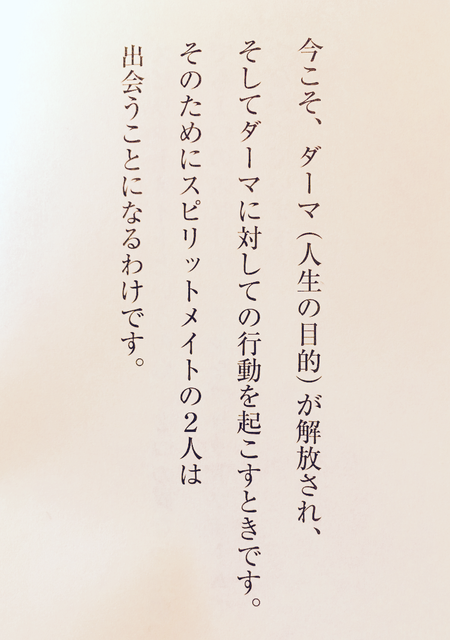 今こそ、ダーマ（人生の目的）が解放され、
そしてダーマに対しての行動を起こすときです。
そのためにスピリットメイトの２人は
出会うことになるわけです。